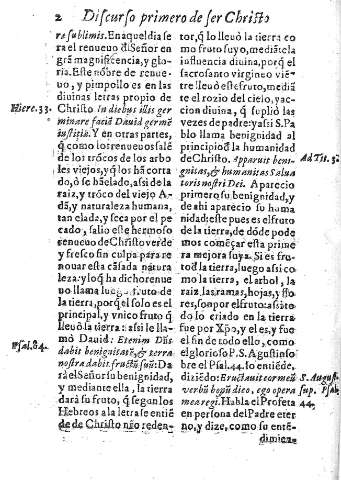 2 Discurso primero de ser Christo
ra sublimis. En aquel dia se
ra el renueuo đl Señor en
grã magnificencia, y glo-
ria. Este nõbre de renue-
uo, y pimpollo es en las
diuinas letras propio de
Hiere. 33.
Christo. In diebus illis ger
minare faciã Dauid germē
iustitiæ. Y en otras partes,
q̃ como los renueuos salē
de los trõcos de los arbo
les viejos, y q̃ los hã corta
do, ò se hã elado, assi de la
raiz, y trõco del viejo A-
dã, y naturaleza humana,
tan elada, y seca por el pe
cado, salio este hermoso
renueuo de Christo verde
y fresco sin culpa para re
nouar esta cãsada natura
leza: y lo q̃ ha dicho renue
uo llama luego fruto de
la tierra, porq̃ el solo es el
principal, y vnico fruto q̃
lleuò la tierra: assi le lla-
Psal. 84.
mò Dauid: Etenim Dñs
dabit benignitatē, & terra
nostra dabit fructũ suũ: Da
rà el Señor su benignidad,
y mediante ella, la tierra
darà su fruto, q̃ segun los
Hebreos a la letra se entiē
de de Christo nřo reden-
tor, q̃ lo lleuò la tierra co
mo fruto suyo, mediãte la
influencia diuina, porq̃ el
sacrosanto virgineo viē-
tre lleuò este fruto, mediã
te el rozio del cielo, y ac-
cion diuina, q̃ suplio las
vezes de padre: y assi S. Pa
blo llama benignidad al
principio đ la humanidad
de Christo. Apparuit beni-
Ad Tit. 3.
gnitas, & humanitas Salua
toris nostri Dei. Aparecio
primero su benignidad, y
de ahi aparecio su huma
nidad; este pues es el fruto
de la tierra, de dõde pode
mos començar esta prime
ra mejora suya. Si es fru-
to đ la tierra, luego assi co
mo la tierra, el arbol, la
raiz, las ramas, hojas, y flo
res, son por el fruto: assi to
do lo criado en la tierra
fue por Xp̃o, y el es, y fue
el fin de todo ello, como
el glorioso P. S. Agustin so
bre el Psal. 44. lo entiēde,
diziēdo: Eructauit cor meũ
S. August.
verbũ bonũ dico, ego opera
sup. Psal.
mea regi. Habla el Profeta
44.
en persona del Padre eter
no, y dize, como su entē-
dimien-